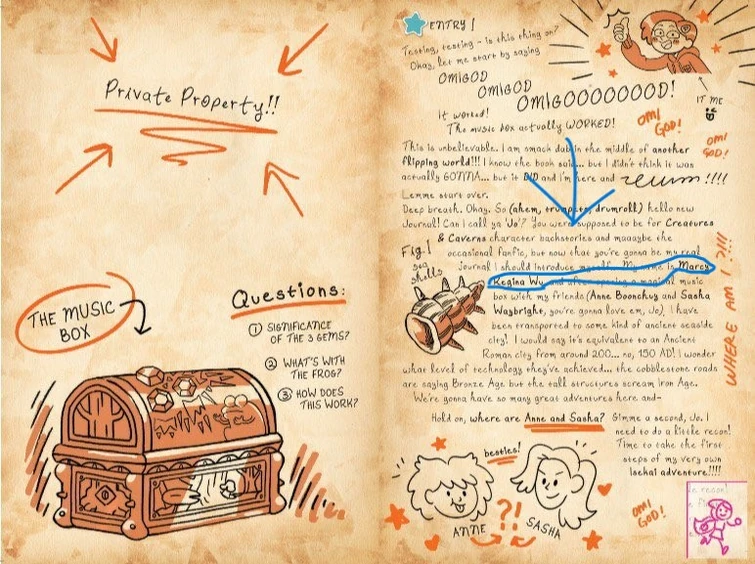 Private Property!!
THE MUSIC
BOX
Questions:
① SIGNIFICANCE
OF THE 3 GEMS?
② WHAT'S WITH
THE FROG?
③ HOW DOES
THIS WORK?
ENTRY 1
Testing, testing - is this thing on?
Okay, let me start by saying
OMIGOD
OMIGOD
OMIGOOOOOOOD!
IT ME
It worked!
The music box actually WORKED!
OMI
GOD!
OMI
GOD!
This is unbelievable. I am smack dab in the middle of another
flipping world!!! I know the book said... but I didn't think it was
actually GONNA... but it DID and I'm here and !!!!
Lemme start over.
Deep breath. Okay. So (ahem, trumpets, drumroll) hello new
Journal! Can I call ya 'Jo'? You were supposed to be for Creatures
& Caverns character backstories and maaaybe the
occasional fanfic, but now that you're gonna be my real
journal I should introduce myself. My name is Marcy
Regina Wu and after opening a magical music
box with my friends (Anne Boonchuy and Sasha
Waybright, you're gonna love em, Jo), I have
been transported to some kind of ancient seaside
city! I would say it's equivalent to an Ancient
Roman city from around 200... no, 150 AD! I wonder
what level of technology they've achieved... the cobblestone roads
are saying Bronze Age but the tall structures scream Iron Age.
We're gonna have so many great adventures here and-
Fig.1
sea
shells
WHERE AM I?!!!
Hold on, where are Anne and Sasha? Gimme a second, Jo. I
need to do a little recon!
Time to take the first
steps of my very own
Isekai adventure!!!!
besties!
ANNE
?!
SASHA
OMI
GOD!